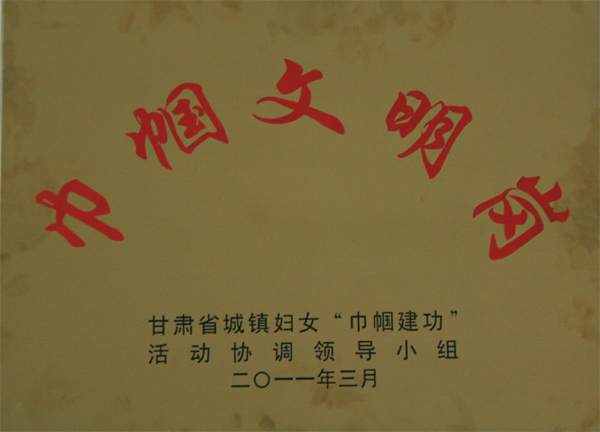 巾帼文明岗
甘肃省城镇妇女“巾帼建功”
活动协调领导小组
二〇一一年三月